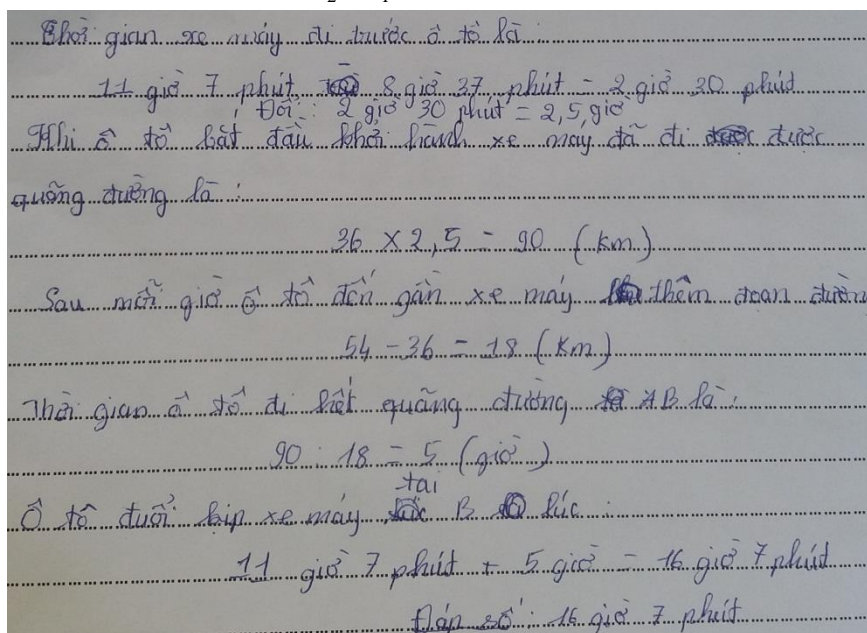 Thời gian xe máy đi trước ô tô là :
11 giờ 7 phút 8 giờ 37 phút = 2 giờ 30 phút
Đổi : 2 giờ 30 phút = 2,5 giờ
Khi ô tô bắt đầu khởi hành xe máy đã đi được
quãng đường là :
36 × 2,5 = 90 (km)
Sau mỗi giờ ô tô đến gần xe máy thêm đoạn đườn
54 - 36 = 18 (km)
Thời gian ô tô đi hết quãng đường AB là :
90 : 18 = 5 (giờ)
Ô tô đuổi kịp xe máy tại B lúc :
11 giờ 7 phút + 5 giờ = 16 giờ 7 phút
Đáp số : 16 giờ 7 phút